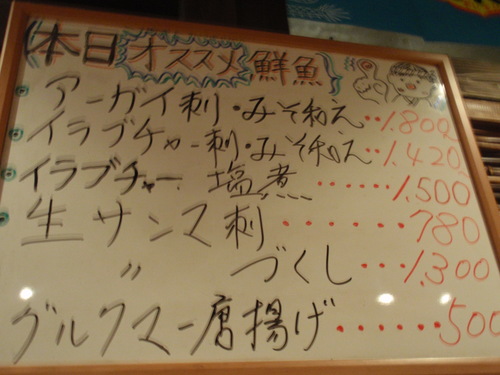 本日オススメ鮮魚
アーガイ刺・みそ和え・・1,800
イラブチャー刺・みそ和え・・1,420
イラブチャー 塩煮・・・・・・1,500
生サンマ刺・・・・・・780
〃 づくし・・・1,300
グルクマー唐揚げ・・・・・・500